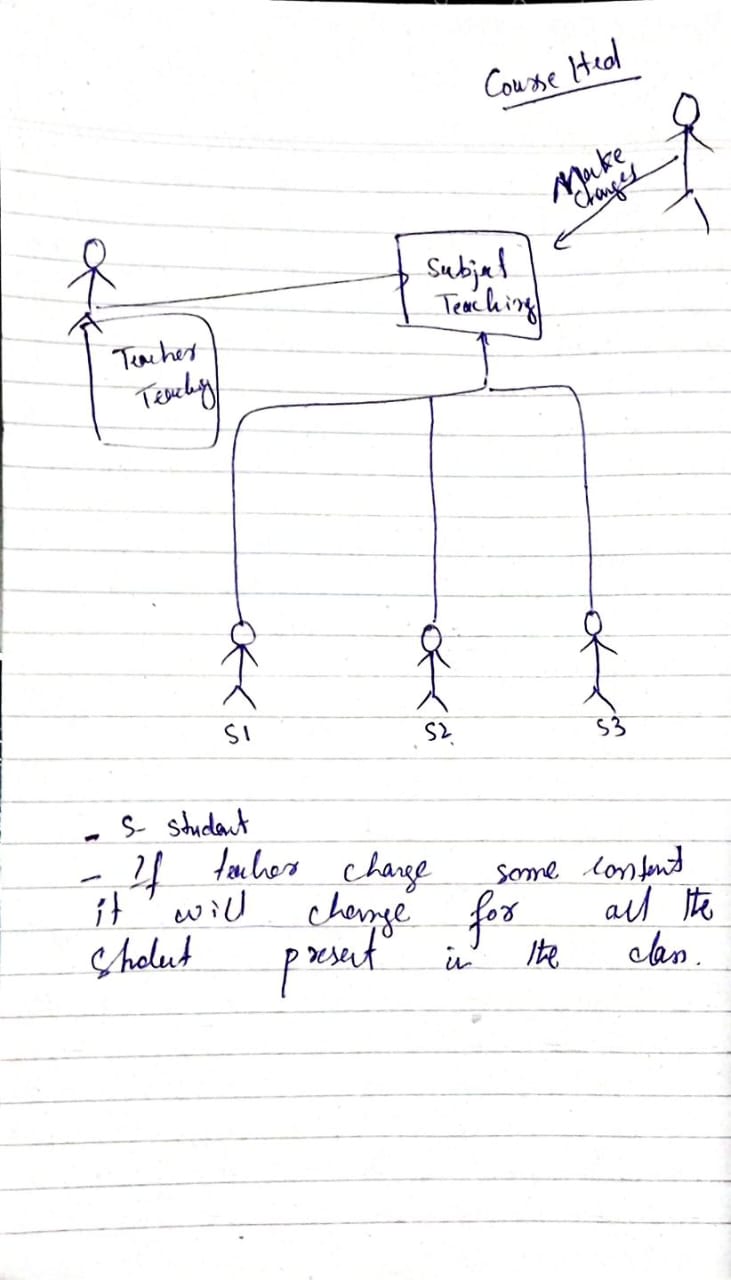 Course Hed
Make
changes
Subject
Teaching
Teacher
Teaching
S1
S2
S3
- S- student
- If teacher change some content
it will change for all the
Student present in the class.